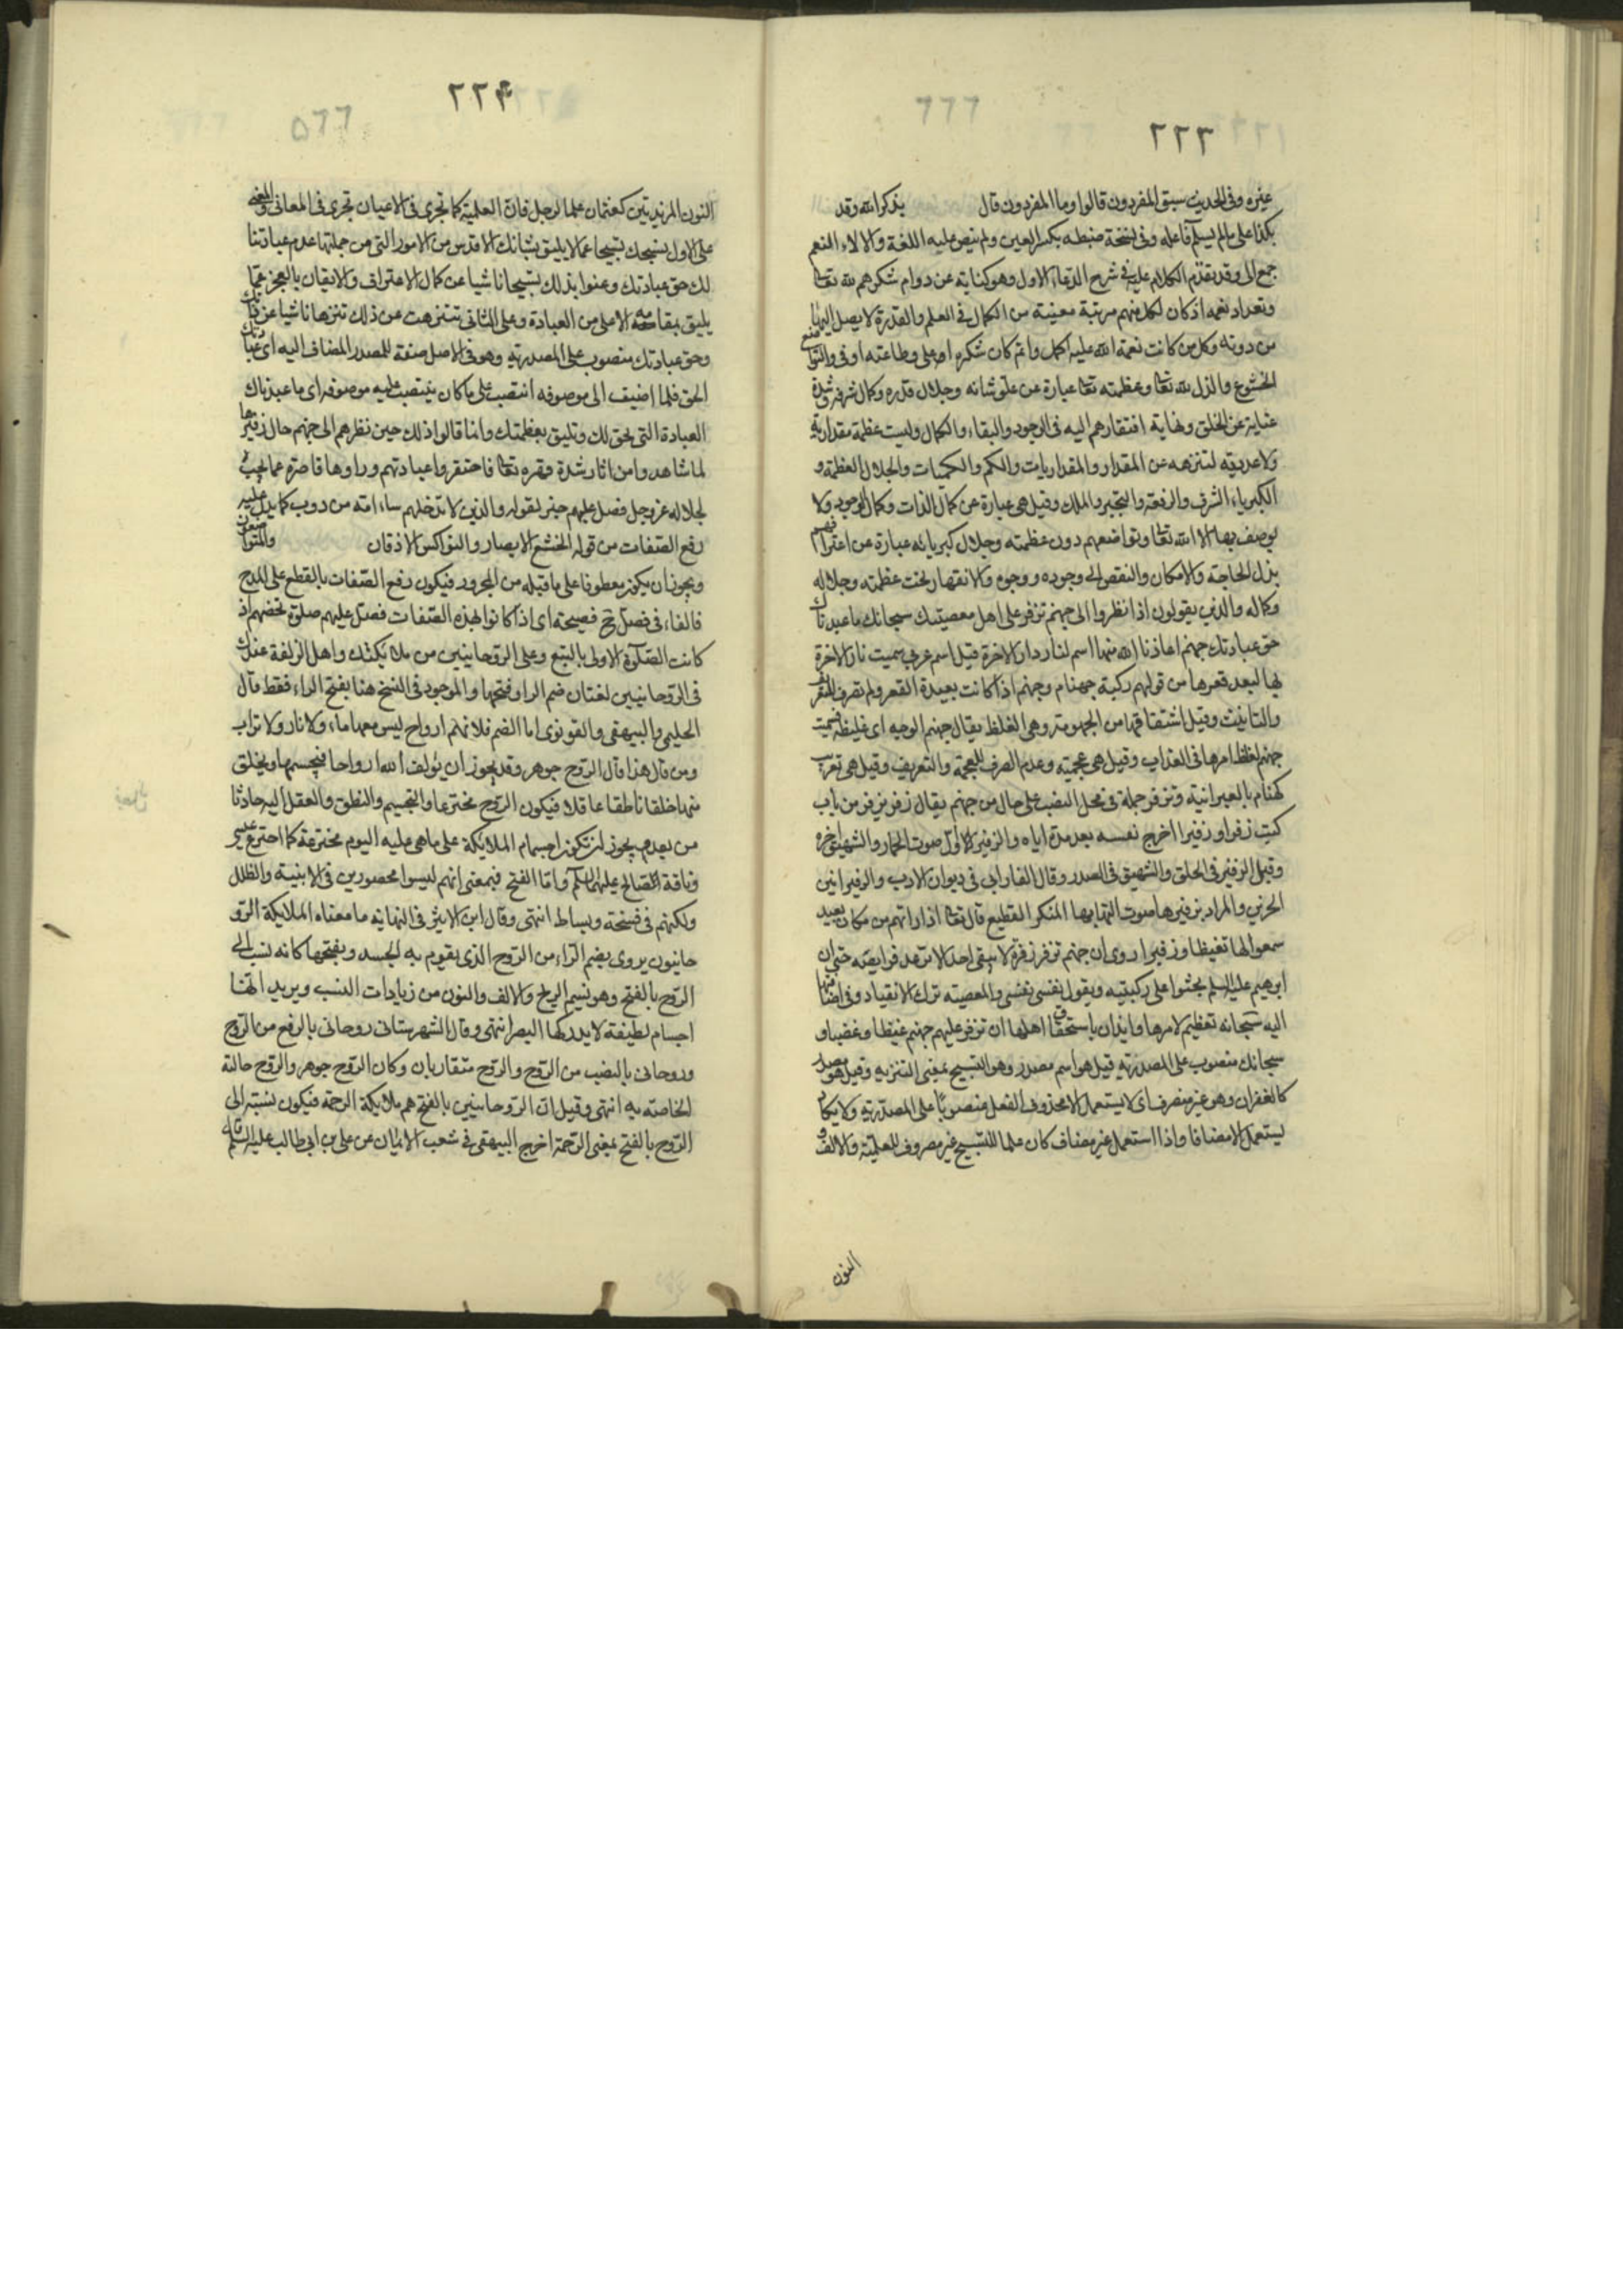 ٢٢٣
٦٦٦
غيره وفى الحديث سبق المفردون قالوا وما المفردون قال يذكر الله وقد
بكذا على مالم يسم فاعله وفى نسخة ضبطه بكسر العين ولم ينص عليه اللغة والالاء النعم
جمع الى وقد تقدم الكلام عليه فى شرح الدعاء الاول وهو كناية عن دوام شكرهم لله تعا
وتعداد نعمه اذ كان لكل منهم مرتبة معينة من الكمال فى العلم والقدرة لا يصل اليها
من دونه وكل من كانت نعمة الله عليه اكمل واتم كان شكره اعلى وطاعته اوفى والتواضع
الخشوع والذل لله تعا وعظمته تعا عبارة عن علو شانه وجلال قدره وكمال شرفه وشدة
غنايه عن الخلق ونهاية افتقارهم اليه فى الوجود والبقاء والكمال وليست عظمة مقدارية
ولا عددية لتنزهه عن المقدار والمقداريات والكم والكميات والجلال العظمة و
الكبرياء الشرف والرفعة والتجبر والملك وقيل هى عبارة عن كمال الذات وكمال الوجود ولا
يوصف بها الا الله تعا وتواضعهم دون عظمته وجلال كبريائه عبارة عن اعترافهم
بذل الحاجة والامكان والنقص الى وجوده ووجوه والانقهار تحت عظمته وجلاله
وكماله والذين يقولون اذا نظروا الى جهنم تزفر على اهل معصيتك سبحانك ما عبدناك
حق عبادتك جهنم اعاذنا الله منها اسم لنار دار الاخرة قيل اسم عربى سميت نار الاخرة
بها لبعد قعرها من قولهم ركية جهنام وجهنم اذا كانت بعيدة القعر ولم تصرف للتعريف
والتانيث وقيل اشتقاقها من الجهومة وهى الغلظ يقال جهنم الوجه اى غليظه فسميت
جهنم لغلظ امرها فى العذاب وقيل هى عجمية وعدم الصرف للعجمة والتعريف وقيل هى تعريب
كهنام بالعبرانية وتزفر جملة فى محل النصب على حال من جهنم يقال زفر يزفر من باب
كتب زفرا وزفيرا اخرج نفسه بعد مدة اياه والزفير الاول صوت الحمار والشهيق اخره
وقيل الزفير فى الحلق والشهيق فى الصدر وقال الفارابى فى ديوان الادب والزفير انين
الحزين والمراد بزفيرها صوت التهابها المنكر الفظيع قال تعا اذا راتهم من مكان بعيد
سمعوا لها تغيظا وزفيرا روى ان جهنم تزفر زفرة لا يبقى احد الا ترعد فرايصه حتى ان
ابرهيم عليه السلم يجثوا على ركبتيه ويقول نفسى نفسى والمعصية ترك الانقياد وفى اضافتها
اليه سبحانه تعظيم لامرها وايذان باستحقاق اهلها ان تزفر عليهم جهنم غيظا وغضبا و
سبحانك منصوب على المصدرية قيل هو اسم مصدر وهو التسبيح بمعنى التنزيه وقيل هو مصدر
كالغفران وهو غير منصرف اى لا يستعمل الا محذوف الفعل منصوبا على المصدرية ولا يكاد
يستعمل الا مضافا واذا استعمل غير مضاف كان علما للتسبيح غير مصروف للعلمية والالف و
النون
٢٢٤
٥٦٦
النون المزيدتين كعثمان علما لرجل فان العلمية كما تجرى فى الاعيان تجرى فى المعانى والمعنى
على الاول نسبحك تسبيحا عما لا يليق بشانك الاقدس من الامور التى من جملتها عدم عبادتنا
لك حق عبادتك وعنوا بذلك تسبيحا ناشيا عن كمال الاعتراف والايقان بالعجز عما
يليق بمقامه الاعلى من العبادة وعلى الثانى تنزهت عن ذلك تنزها ناشيا عن ذاتك
وحق عبادتك منصوب على المصدرية وهو فى الاصل صفة للمصدر المضاف اليه اى عبادتك
الحق فلما اضيف الى موصوفه انتصب على ما كان ينتصب عليه موصوفه اى ما عبدناك
العبادة التى تحق لك وتليق بعظمتك وانما قالوا ذلك حين نظرهم الى جهنم حال زفيرها
لما شاهدوا من اثار شدة قهره تعا فاحتقروا عبادتهم وراوها قاصرة عما يجب
لجلاله عز وجل فصل عليهم خبر لقوله والذين لا تدخلهم ساءامة من دوب كما يدل عليه
رفع الصفات من قوله الخشع الابصار والنواكس الاذقان والمتواضعون
ويجوز ان يكون معطوفا على ما قبله من المجرور فيكون رفع الصفات بالقطع على المدح
فالفاء فى فصل ح فصيحة اى اذا كانوا بهذه الصفات فصل عليهم صلوة تخصهم اذ
كانت الصلوة الاولى بالتبع وعلى الروحانيين من ملائكتك واهل الزلفة عندك
فى الروحانيين لغتان ضم الرا وفتحها والموجود فى النسخ هنا بفتح الراء فقط قال
الحليمى والبيهقى والقونوى اما الضم فلانهم ارواح ليس معها ماء ولا نار ولا تراب
ومن قال هذا قال الروح جوهر وقد يجوز ان يؤلف الله ارواحا فيجسمها ويخلق
منها خلقا ناطقا عاقلا فيكون الروح مخترعا والتجسيم والنطق والعقل اليه حادثا
من بعدم يجوز ان تكون اجسام الملائكة على ما هى عليه اليوم مخترعة كما اخترع عيسى
وناقة صالح عليهما السلم واما الفتح فبمعنى انهم ليسوا محصورين فى الابنية والظلل
ولكنهم فى فسحة وبساط انتهى وقال ابن الاثير فى النهاية ما معناه الملائكة الرو
حانيون يروى بضم الراء من الروح الذى يقوم به الجسد وبفتحها كانه نسب الى
الروح بالفتح وهو نسيم الريح والالف والنون من زيادات النسب ويريد انها
اجسام لطيفة لا يدركها البصر انتهى وقال الشهرستانى روحانى بالرفع من الروح
وروحانى بالنصب من الروح والروح متقاربان وكان الروح جوهر والروح حالته
الخاصة به انتهى وقيل ان الروحانيين بالفتح هم ملائكة الرحمة فيكون نسبته الى
الروح بالفتح بمعنى الرحمة اخرج البيهقى فى شعب الايمان عن على بن ابى طالب عليه السلم قال